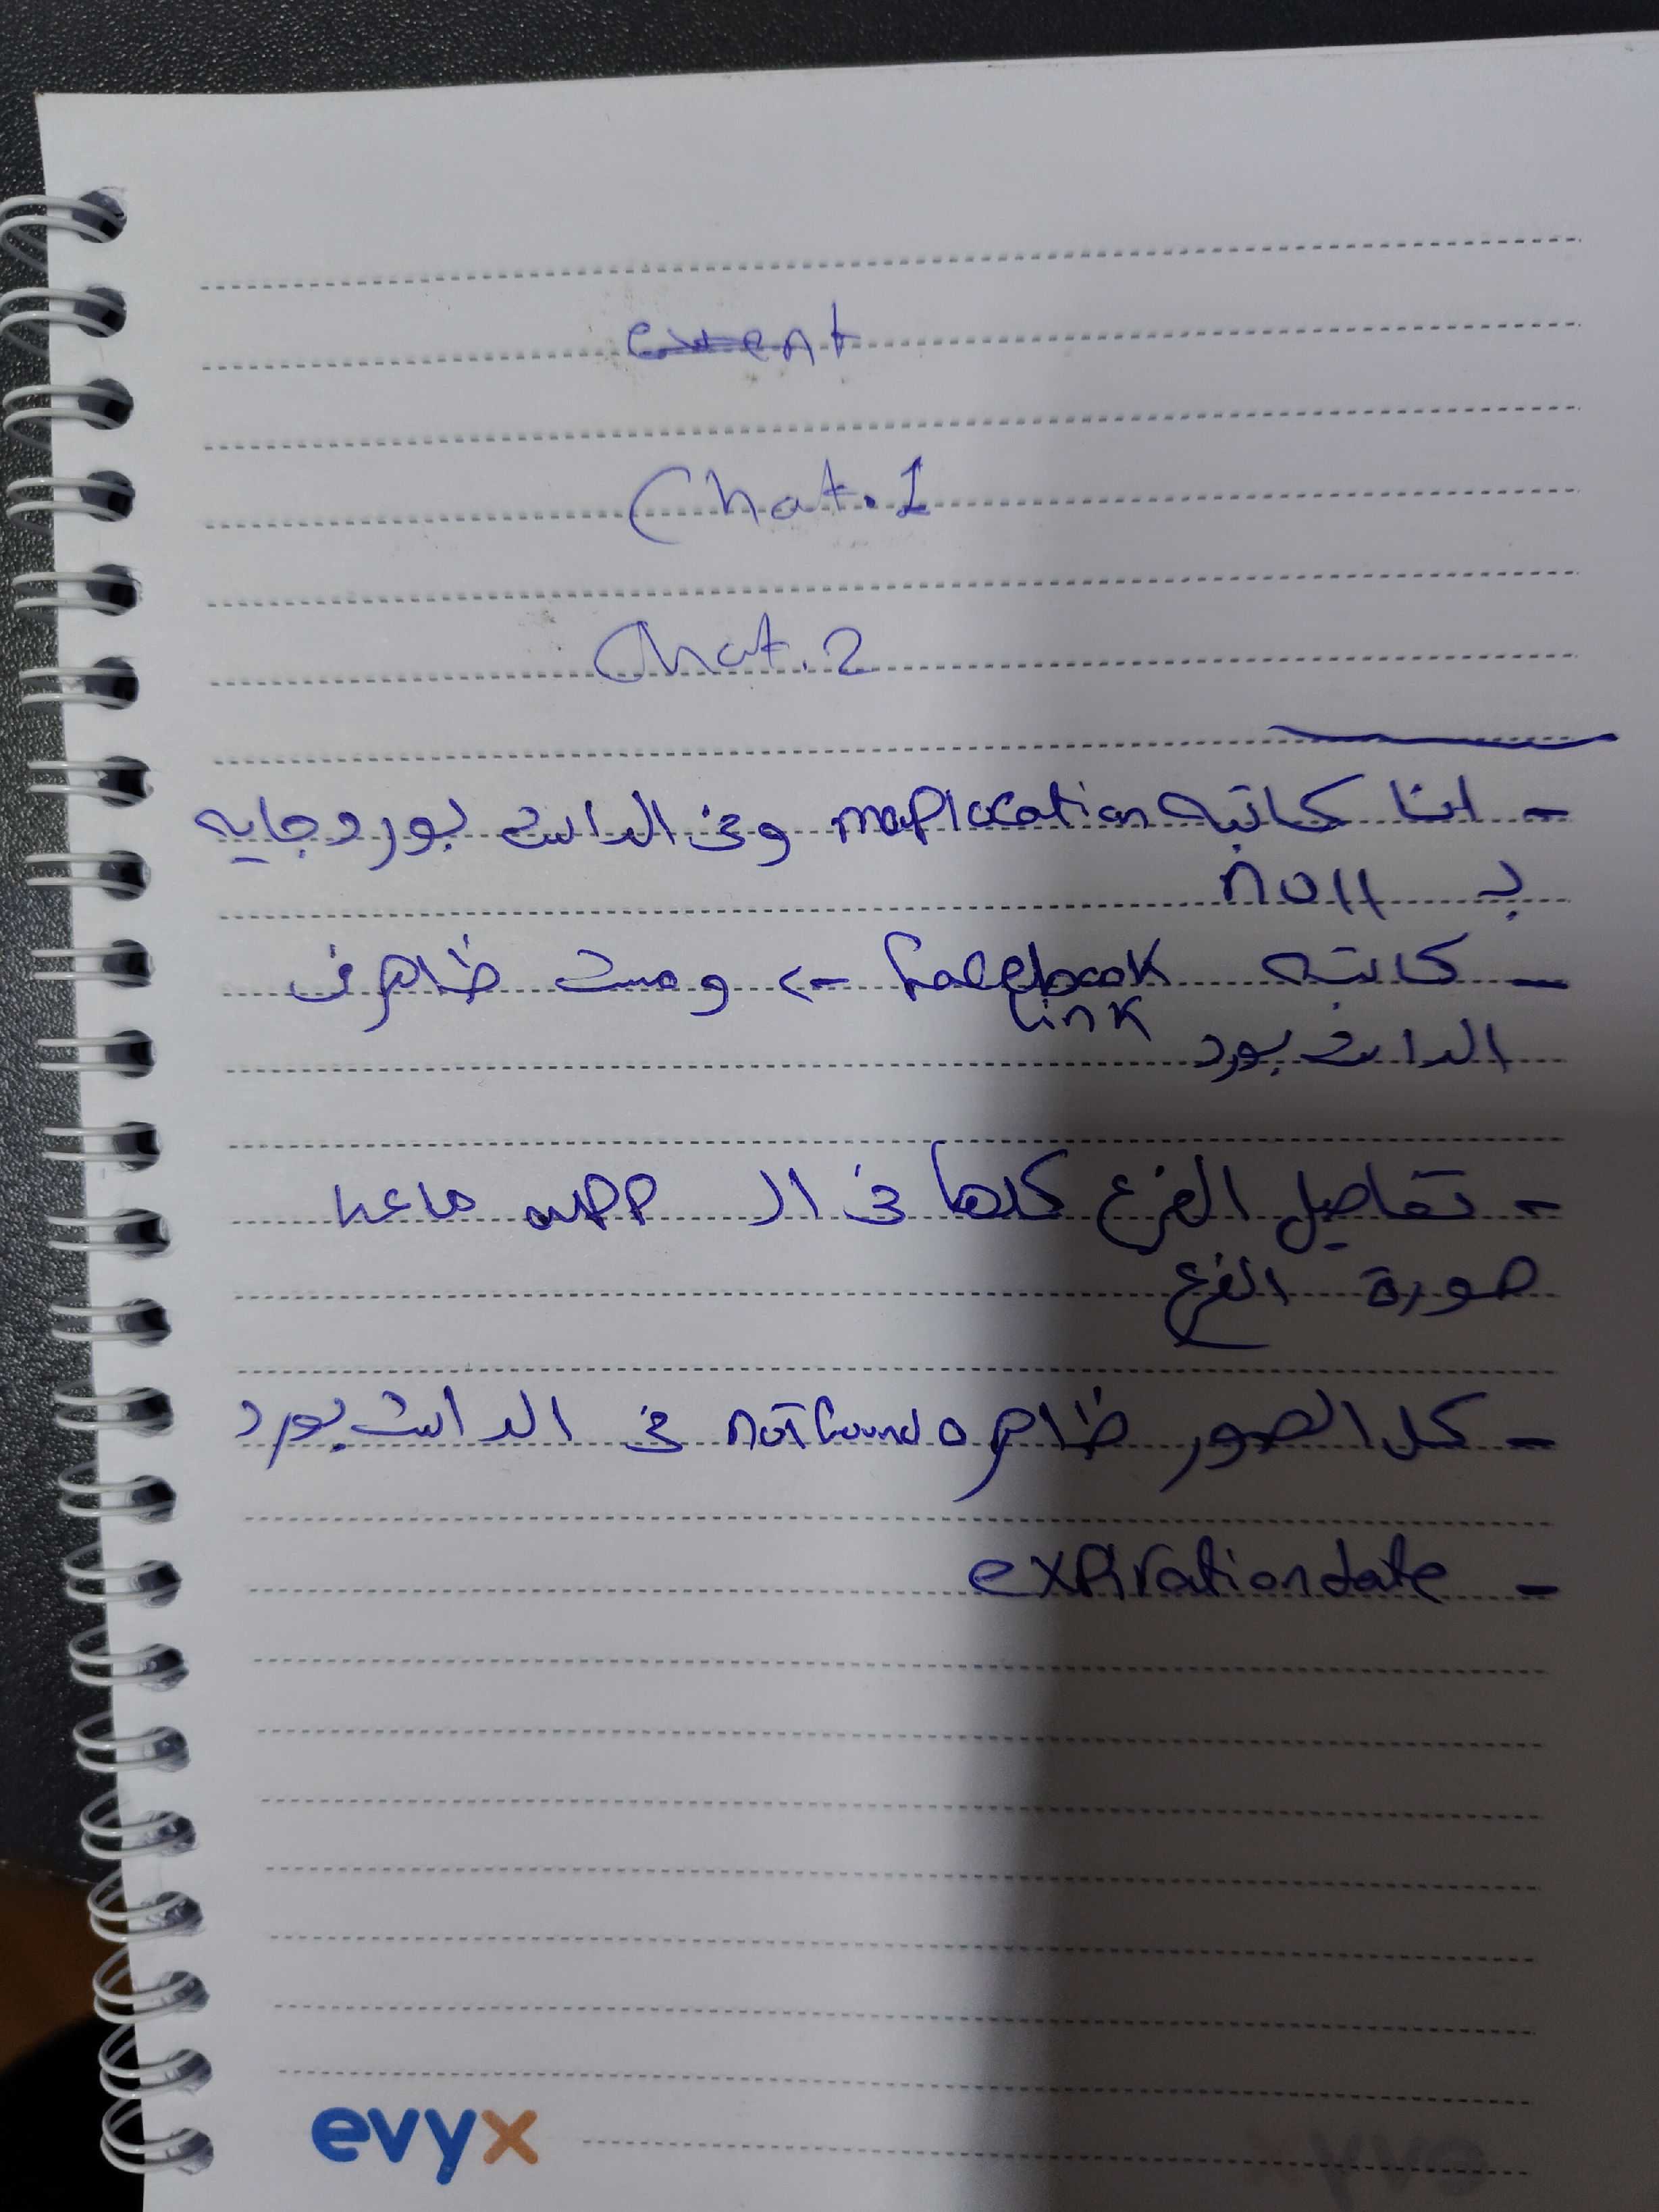 event
Chat.1
Chat.2
- انا كاتبه maplocation وفى الداش بورد جايه
ب null
- كاتبه facebook -> ومش ظاهر فى
link
الداش بورد
- تفاصيل الفرع كلها فى ال app ماعدا
صورة الفرع
- كل الصور ظاهره not found فى الداش بورد
- expiration date
evyx